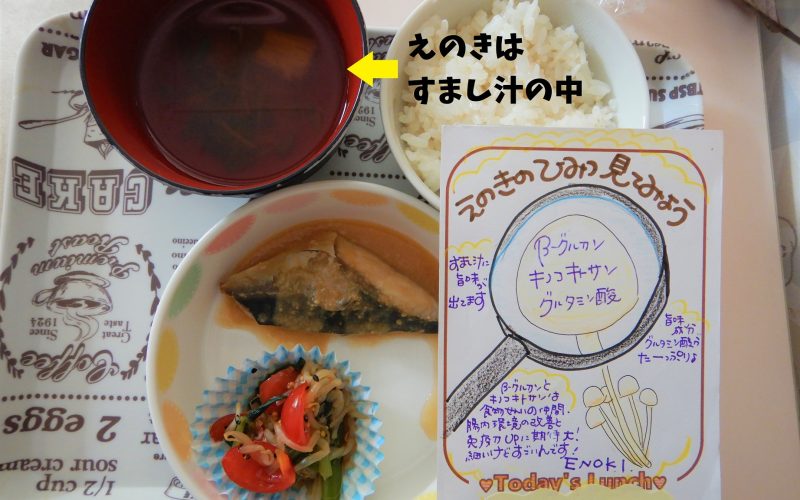 えのきは
すまし汁の中
えのきのひみつ見てみよう
β-グルカン
キノコキトサン
グルタミン酸
すまし汁に
旨味が
出てます
旨味
成分
グルタミン酸が
たーっぷりよ
β-グルカンと
キノコキトサンは
食物せんいの仲間!
腸内環境の改善と
免疫力UPに期待大!
細いけどすごいんです!
ENOKI
♥Today's Lunch♥
CAKE
Coffee
Since
1924
Premium
Roast
Great
Taste
Since
1924
Coffee
2 eggs
1/2 cup
sour cream